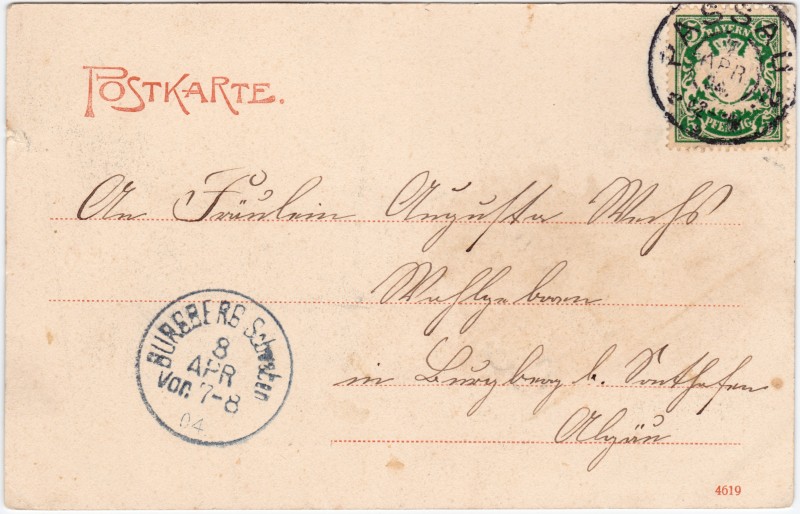 POSTKARTE.
PASSAU
BAYERN
APR
PFENNIG
An Fräulein Augusta Wechs
Wohlgeboren
in Burgberg b. Sonthofen
Algäu
BURGBERG Schwaben
8
APR
Vor. 7-8
04
4619